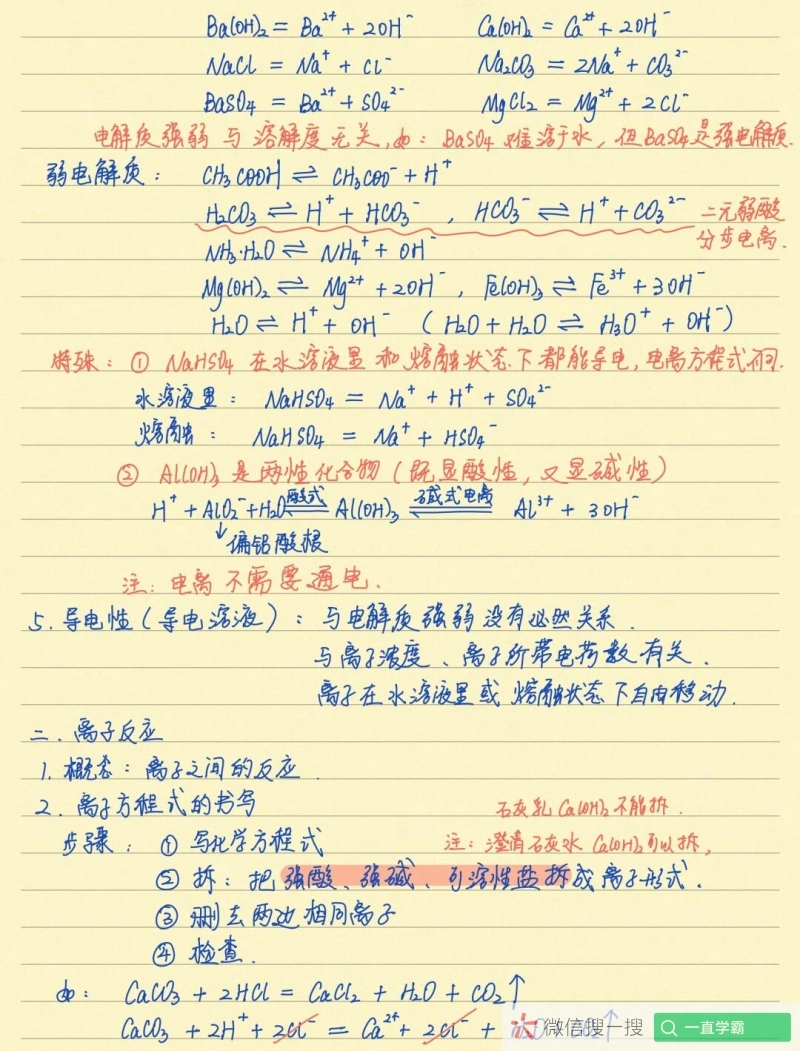 Ba(OH)₂ = Ba²⁺ + 2OH⁻ Ca(OH)₂ = Ca²⁺ + 2OH⁻
NaCl = Na⁺ + Cl⁻ Na₂CO₃ = 2Na⁺ + CO₃²⁻
BaSO₄ = Ba²⁺ + SO₄²⁻ MgCl₂ = Mg²⁺ + 2Cl⁻
电解质强弱与溶解度无关,如：BaSO₄难溶于水，但BaSO₄是强电解质.
弱电解质： CH₃COOH ⇌ CH₃COO⁻ + H⁺
H₂CO₃ ⇌ H⁺ + HCO₃⁻ , HCO₃⁻ ⇌ H⁺ + CO₃²⁻ 二元弱酸
分步电离.
NH₃·H₂O ⇌ NH₄⁺ + OH⁻
Mg(OH)₂ ⇌ Mg²⁺ + 2OH⁻ , Fe(OH)₃ ⇌ Fe³⁺ + 3OH⁻
H₂O ⇌ H⁺ + OH⁻ (H₂O + H₂O ⇌ H₃O⁺ + OH⁻)
特殊：① NaHSO₄ 在水溶液里和熔融状态下都能导电,电离方程式不同.
水溶液里： NaHSO₄ = Na⁺ + H⁺ + SO₄²⁻
熔融： NaHSO₄ = Na⁺ + HSO₄⁻
② Al(OH)₃ 是两性化合物 (既显酸性，又显碱性)
酸式 碱式电离
H⁺ + AlO₂⁻ + H₂O ⇌ Al(OH)₃ ⇌ Al³⁺ + 3OH⁻
↓偏铝酸根
注：电离不需要通电.
5. 导电性 (导电溶液)：与电解质强弱没有必然关系.
与离子浓度、离子所带电荷数有关.
离子在水溶液里或熔融状态下自由移动.
二. 离子反应
1. 概念：离子之间的反应.
2. 离子方程式的书写 石灰乳 Ca(OH)₂不能拆.
步骤：① 写化学方程式 注：澄清石灰水 Ca(OH)₂可以拆,
② 拆：把强酸、强碱、可溶性盐拆成离子形式.
③ 删去两边相同离子
④ 检查.
如： CaCO₃ + 2HCl = CaCl₂ + H₂O + CO₂↑
CaCO₃ + 2H⁺ + 2Cl⁻ = Ca²⁺ + 2Cl⁻ + H₂O + CO₂↑
微信搜一搜 一直学霸